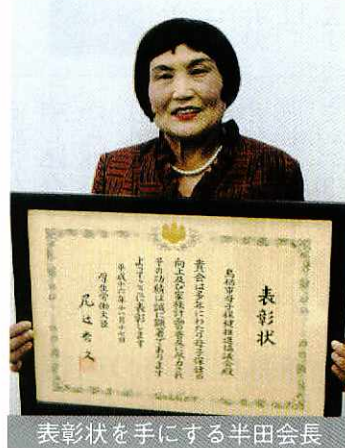 表彰状
鳥栖市母子保健推進協議会殿
貴会は多年にわたり母子保健の
向上及び家族計画の普及に尽力され
その功績は誠に顕著であります
よってここに表彰します
平成十六年十一月十七日
厚生労働大臣
尾辻秀久
表彰状を手にする半田会長